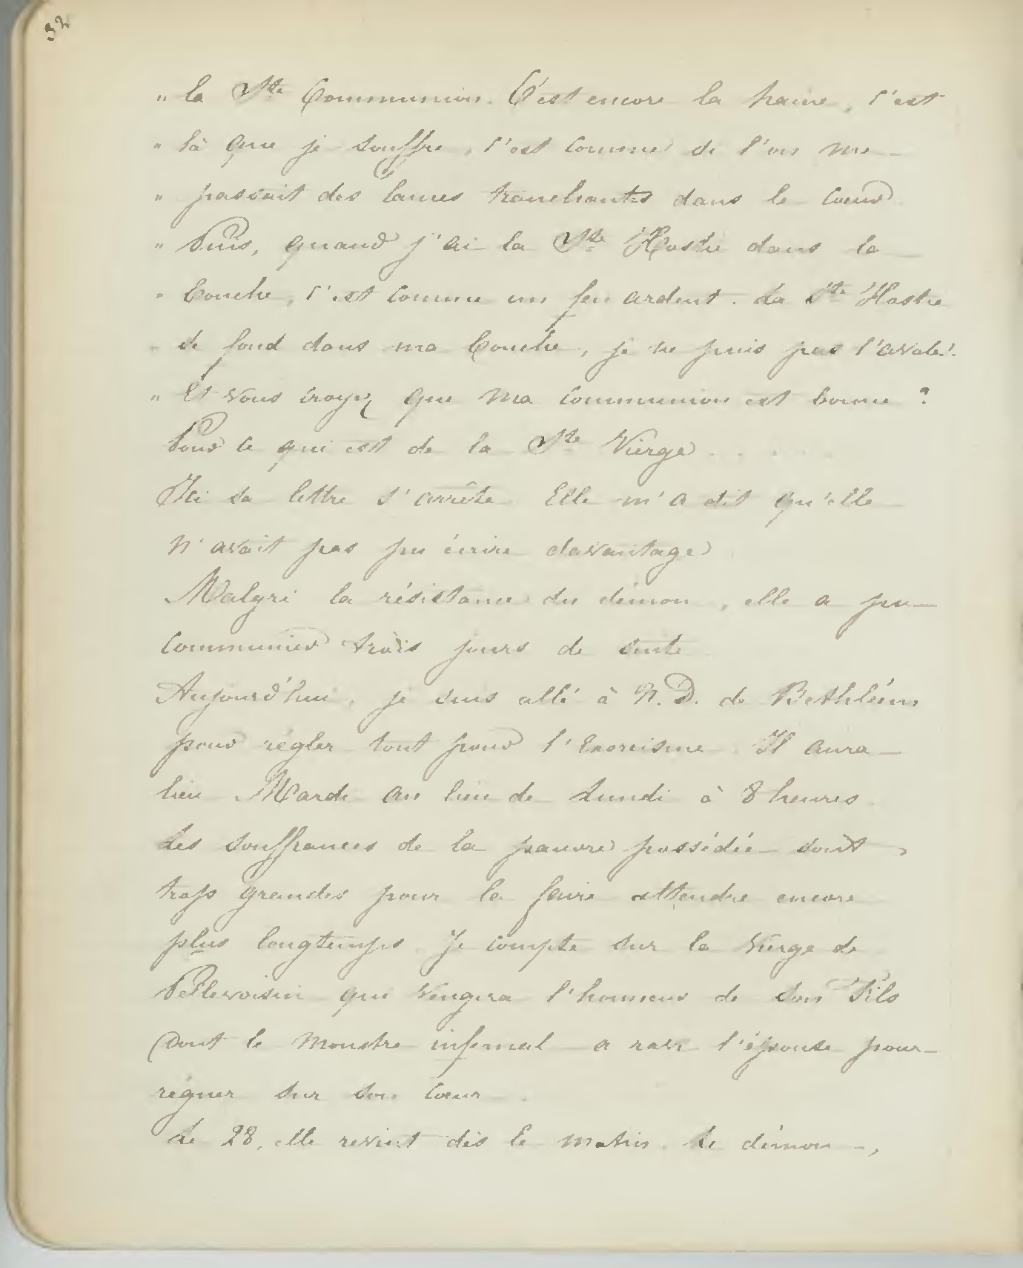 32
" la Ste Communion. C'est encore la haine, c'est
" là que je souffre, c'est comme si l'on me
" passait des lames tranchantes dans le coeur.
" Puis, quand j'ai la Ste Hostie dans la
" bouche, c'est comme un feu ardent. La Ste Hostie
" se fond dans ma bouche, je ne puis pas l'avaler.
" Et vous croyez que ma communion est bonne ?
Pour ce qui est de la Ste Vierge . . . . .
Ici sa lettre s'arrête. Elle m'a dit qu'elle
n'avait pas pu écrire davantage.
Malgré la résistance du démon, elle a pu
communier trois jours de suite.
Aujourd'hui, je suis allé à N. D. de Bethléem
pour régler tout pour l'Exorcisme. Il aura
lieu Mardi au lieu de Lundi à 8 heures.
Les souffrances de la pauvre possédée sont
trop grandes pour la faire attendre encore
plus longtemps. Je compte sur la Vierge de
Pellevoisin qui vengera l'honneur de son Fils
dont le monstre infernal a ravi l'épouse pour
régner sur son coeur.
Le 28, elle revient dès le matin. Le démon,